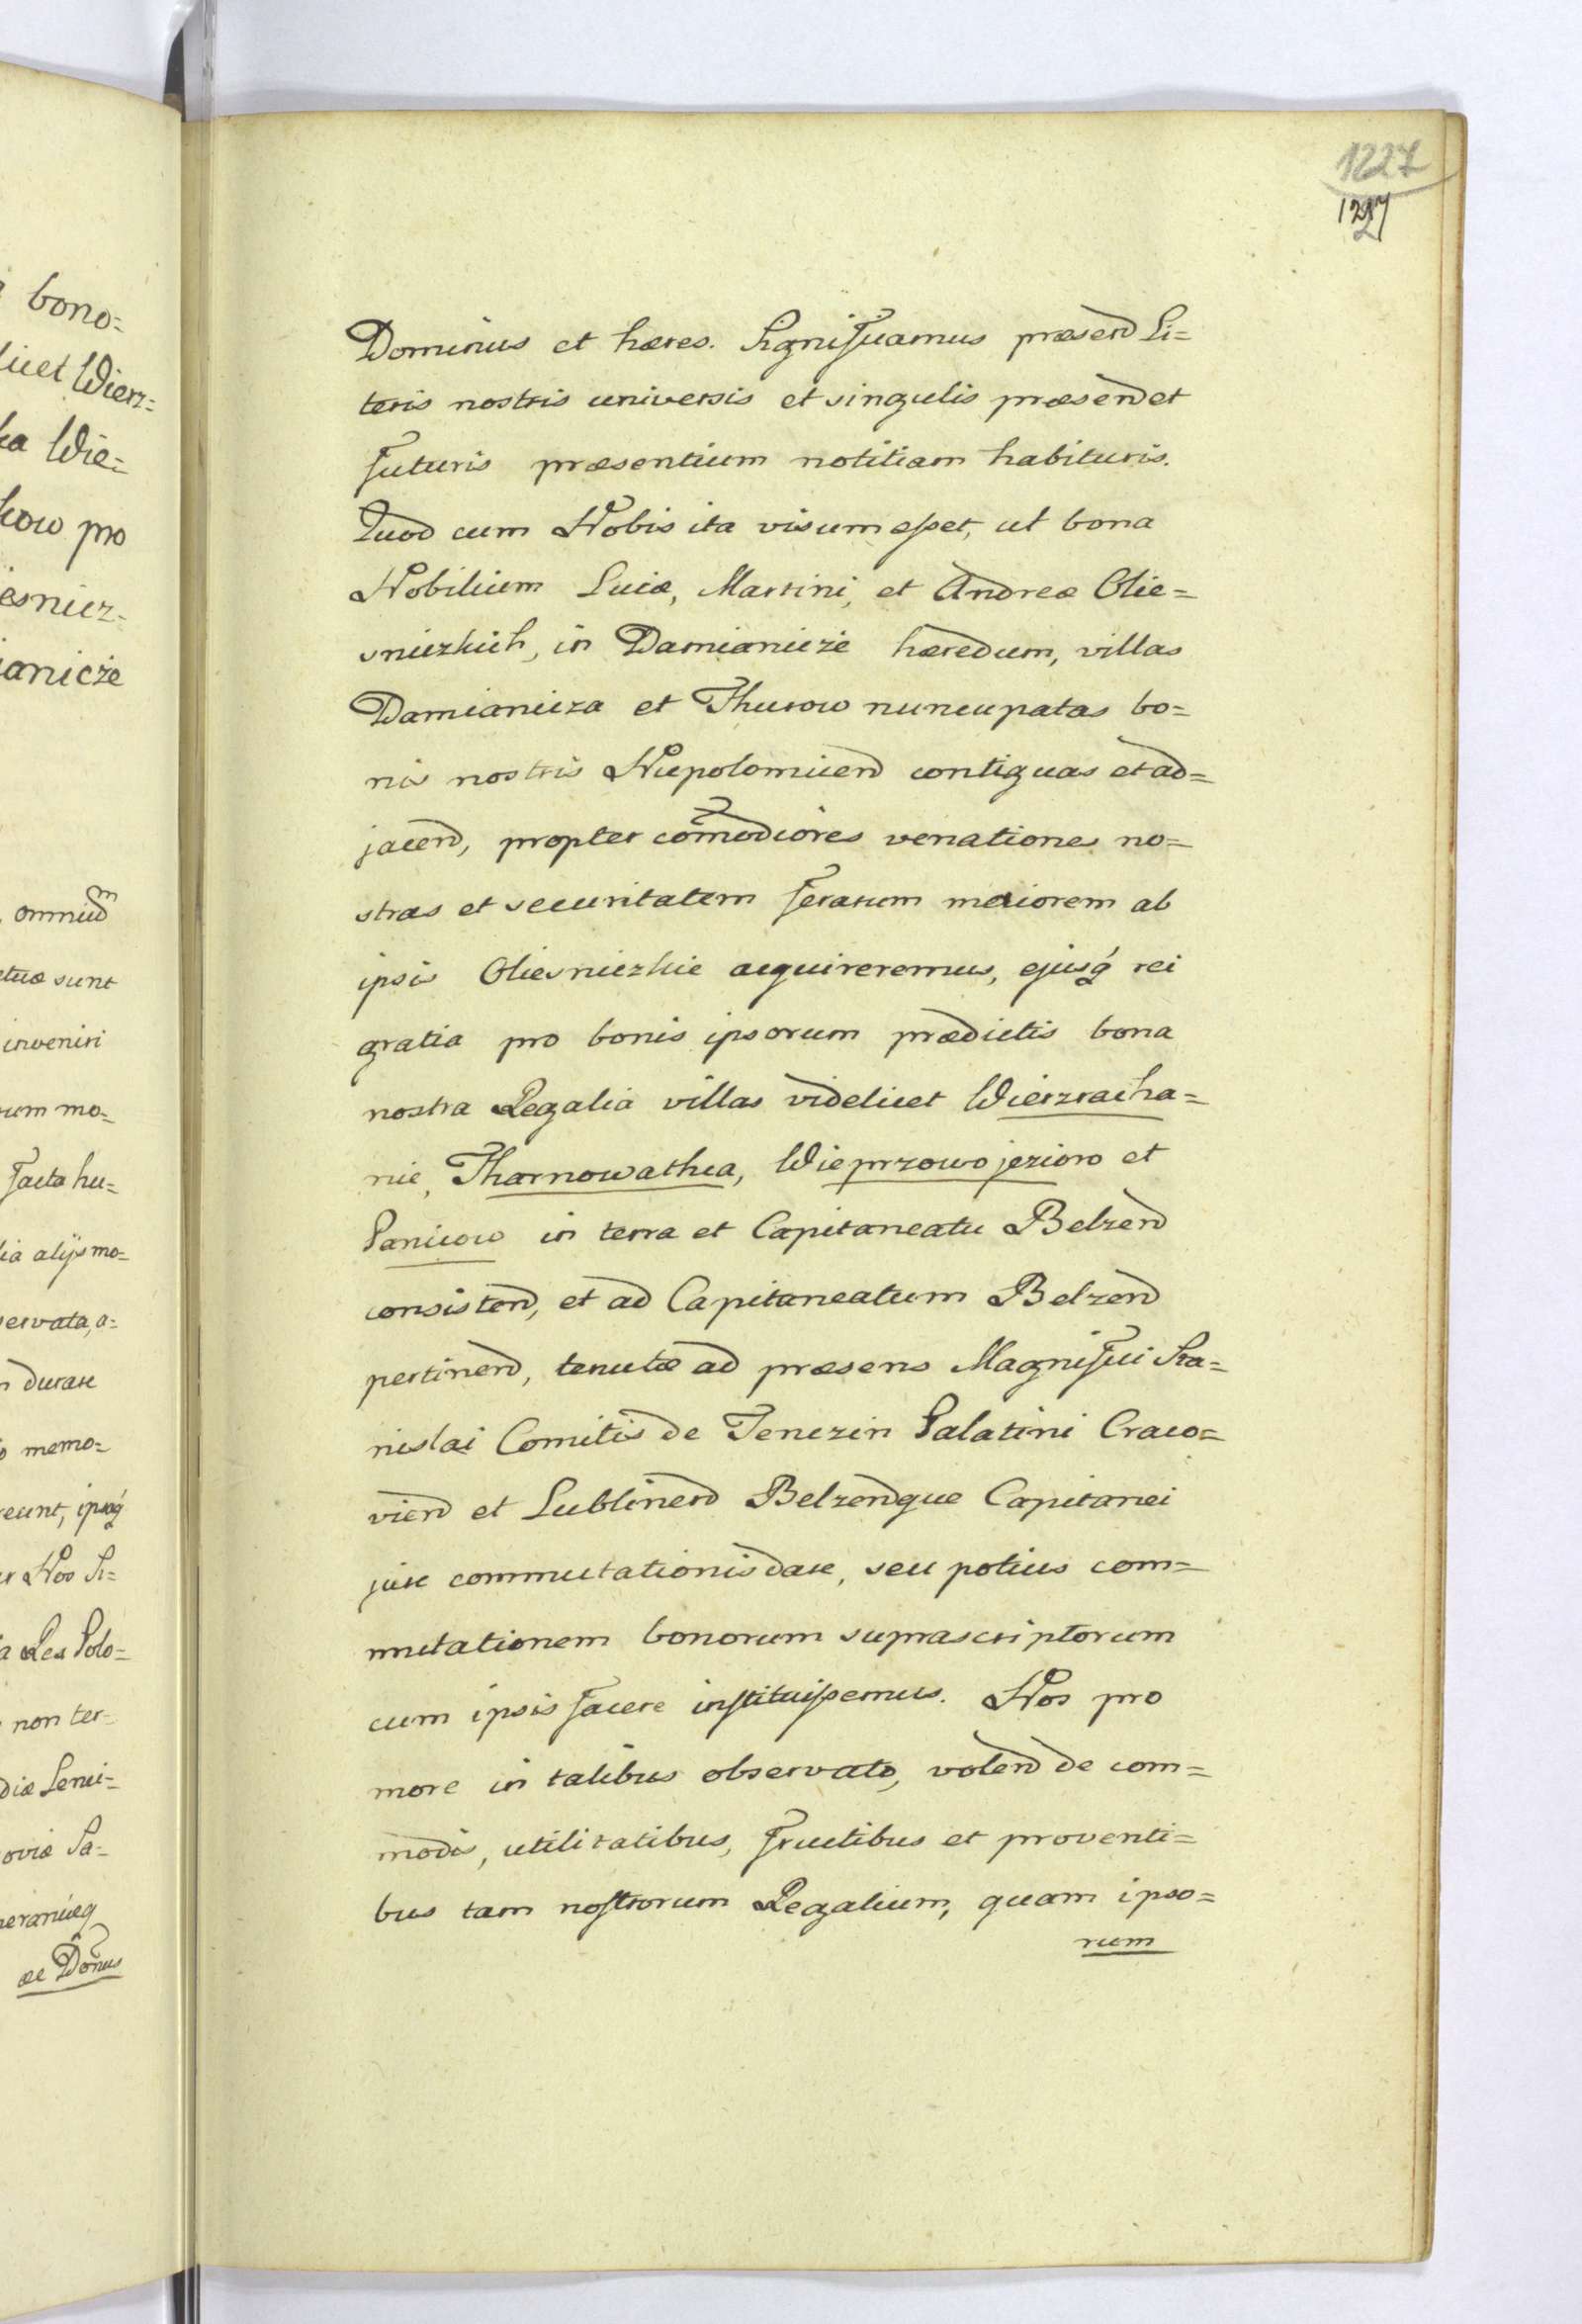 bono=
licet Wierz=
ka Wie=
kow pro
esnicz=
ianicże
omniū
etuæ sunt
inveniri
rum mo=
facta hu=
lia alijs mo=
servata, a=
n durare
o memo=
reunt, ipsaq́
r Nos Si=
a Rex Polo=
non ter=
diæ Lenci=
oviæ Sa=
meraniæq
ac Dōnus
1227
1227
Dominus et hæres. Significamus præsend Li=
teris nostris universis et singulis præsend et
futuris præsentium notitiam habituris.
Quod cum Nobis ita visum esset, ut bona
Nobilium Lucæ, Martini, et Andreæ Olie=
sniczkich, in Damianicże hæredum, villas
Damianicza et Thurow nuncupatas bo=
nis nostris Niepolomicend contiguas et ad=
jacend, propter com̄odiores venationes no=
stras et securitatem ferarum maiorem ab
ipsis Oliesniczkie acquireremus, ejusq́ rei
gratia pro bonis ipsorum prædictis bona
nostra Regalia villas videlicet Wierzracha=
nie, Tharnowathca, Wieprzowo jezioro et
Panicow in terra et Capitaneatu Belzend
consistend, et ad Capitaneatum Belzend
pertinend, tenutæ ad præsens Magnifici Sta=
nislai Comitis de Tenczin Palatini Craco=
viend et Lublinend Belzendque Capitanei
jure commutationis dare, seu potius com=
mutationem bonorum suprascriptorum
cum ipsis facere instituissemus. Nos pro
more in talibus observato, volend de com=
modis, utilitatibus, fructibus et proventi=
bus tam nostrorum Regalium, quam ipso=
rum